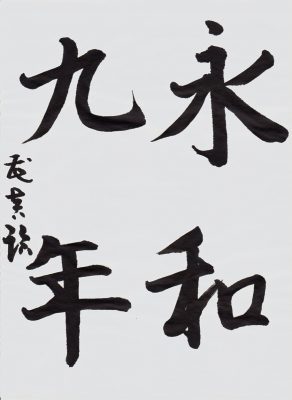 永和
九年